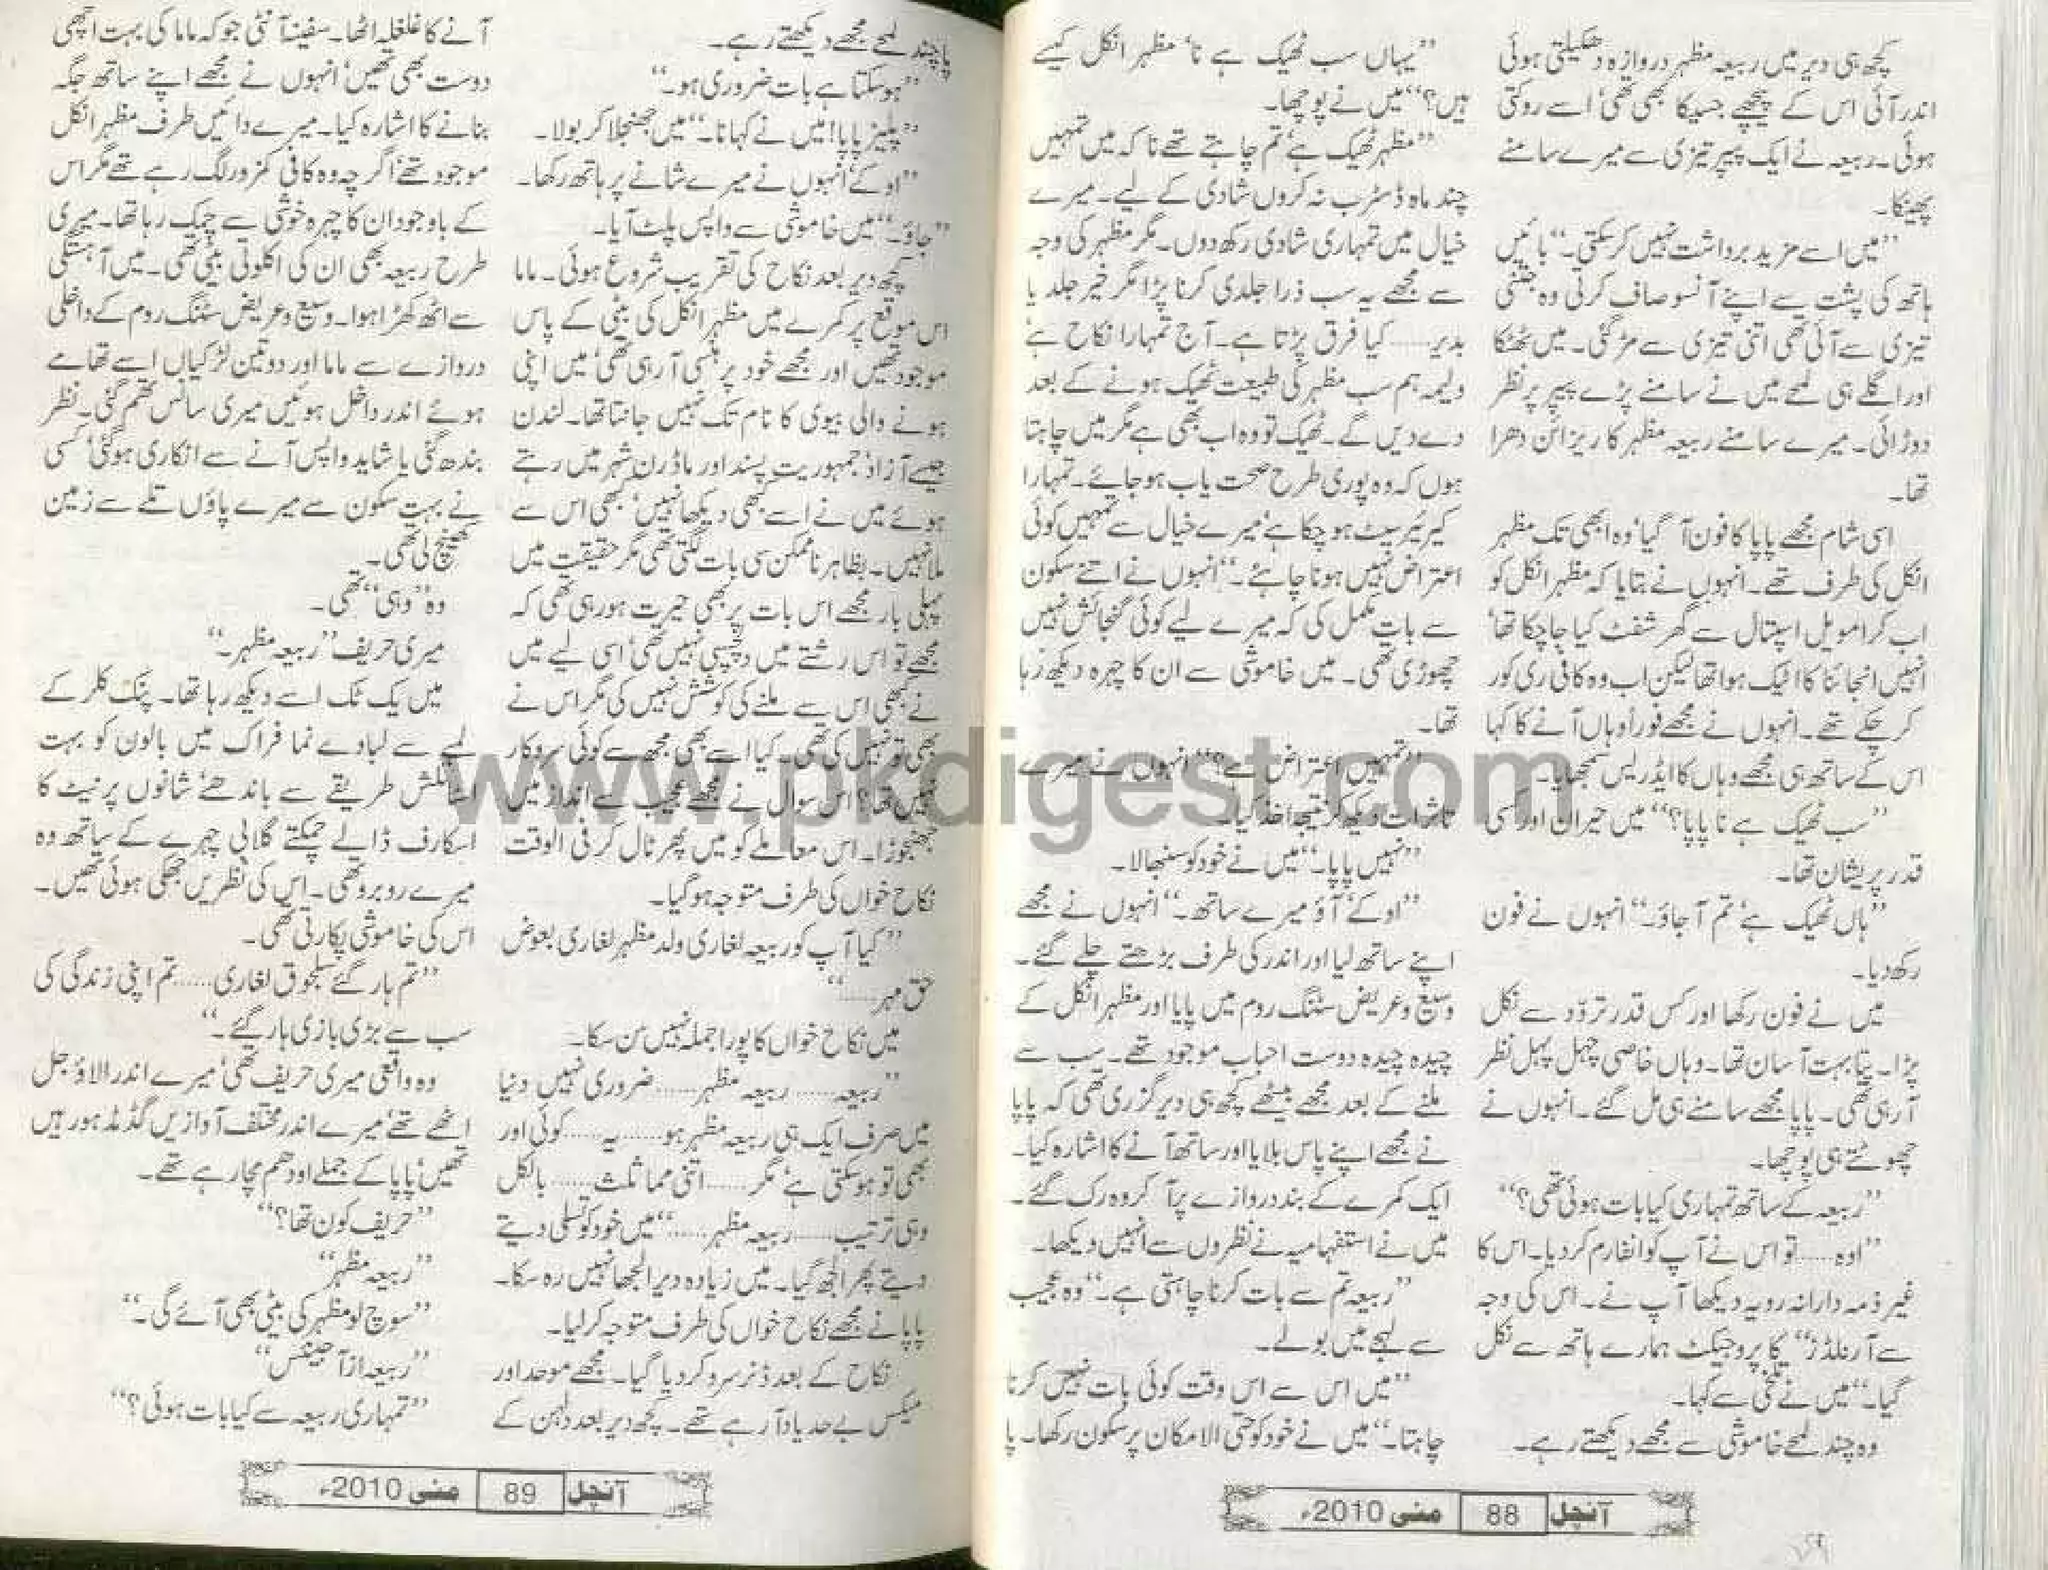 کچھ ہی دیر میں ربیعہ مظہر دروازہ دھکیلتی ہوئی
اندر آئی اس کے پیچھے جسیکا بھی تھی' اسے روکتی
ہوئی۔ ربیعہ نے ایک پیپر تیزی سے میرے سامنے
پھینکا۔
"میں اسے مزید برداشت نہیں کر سکتی۔" بائیں
ہاتھ کی پشت سے اپنے آنسو صاف کرتی وہ جتنی
تیزی سے آئی تھی اتنی تیزی سے مڑ گئی۔ میں ٹھٹکا
اور اگلے ہی لمحے میں نے سامنے پڑے پیپر پر نظر
دوڑائی۔ میرے سامنے ربیعہ مظہر کا ریزائن دھرا
تھا۔
اسی شام مجھے پاپا کا فون آ گیا' وہ ابھی تک مظہر
انکل کی طرف تھے۔ انہوں نے بتایا کہ مظہر انکل کو
اب کرامویل اسپتال سے گھر شفٹ کیا جا چکا تھا'
انہیں انجائنا کا اٹیک ہوا تھا لیکن اب وہ کافی ری کور
کر چکے تھے۔ انہوں نے مجھے فوراً وہاں آنے کا کہا
اس کے ساتھ ہی مجھے وہاں کا ایڈریس سمجھایا۔
"سب ٹھیک ہے نا پاپا؟" میں حیران اور کسی
قدر پریشان تھا۔
"ہاں ٹھیک ہے' تم آ جاؤ۔" انہوں نے فون
رکھ دیا۔
میں نے فون رکھا اور کس قدر تردّد سے نکل
پڑا۔ پتا بہت آسان تھا۔ وہاں خاصی چہل پہل نظر
آ رہی تھی۔ پاپا مجھے سامنے ہی مل گئے۔ انہوں نے
چھوٹتے ہی پوچھا۔
"ربیعہ کے ساتھ تمہاری کیا بات ہوئی تھی؟"
"اوہ...... تو اس نے آپ کو انفارم کر دیا۔ اس کا
غیر ذمہ دارانہ رویہ دیکھا آپ نے۔ اس کی وجہ
سے آرنلڈز" کا پروجیکٹ ہمارے ہاتھ سے نکل
گیا۔" میں نے تلخی سے کہا۔
وہ چند لمحے خاموشی سے مجھے دیکھتے رہے۔
"یہاں سب ٹھیک ہے نا' مظہر انکل کیسے
ہیں؟" میں نے پوچھا۔
"مظہر ٹھیک ہے' تم چاہتے تھے نا کہ میں تمہیں
چند ماہ ڈسٹرب نہ کروں شادی کے لیے۔ میرے
خیال میں تمہاری شادی رکھ دوں۔ مگر مظہر کی وجہ
سے مجھے یہ سب ذرا جلدی کرنا پڑا مگر خیر جلد یا
بدیر...... کیا فرق پڑتا ہے۔ آج تمہارا نکاح ہے'
ولیمہ ہم سب مظہر کی طبیعت ٹھیک ہونے کے بعد
دے دیں گے۔ ٹھیک تو وہ اب بھی ہے مگر میں چاہتا
ہوں کہ وہ پوری طرح صحت یاب ہو جائے۔ تمہارا
کیرئیر سیٹ ہو چکا ہے' میرے خیال سے تمہیں کوئی
اعتراض نہیں ہونا چاہئے۔" انہوں نے اتنے سکون
سے بات مکمل کی کہ میرے لیے کوئی گنجائش نہیں
چھوڑی تھی۔ میں خاموشی سے ان کا چہرہ دیکھ رہا
تھا۔
"تمہیں اعتراض ہے؟" انہوں نے میرے
تاثرات دیکھ کر نتیجہ اخذ کیا۔
"نہیں پاپا۔" میں نے خود کو سنبھالا۔
"اوکے' آؤ میرے ساتھ۔" انہوں نے مجھے
اپنے ساتھ لیا اور اندر کی طرف بڑھتے چلے گئے۔
وسیع و عریض سٹنگ روم میں پاپا اور مظہر انکل کے
چیدہ چیدہ دوست احباب موجود تھے۔ سب سے
ملنے کے بعد مجھے بیٹھے کچھ ہی دیر گزری تھی کہ پاپا
نے مجھے اپنے پاس بلایا اور ساتھ آنے کا اشارہ کیا۔
ایک کمرے کے بند دروازے پر آ کر وہ رک گئے۔
میں نے استفہامیہ نے نظروں سے انہیں دیکھا۔
"ربیعہ تم سے بات کرنا چاہتی ہے۔" وہ عجیب
سے لہجے میں بولے۔
"میں اس سے اس وقت کوئی بات نہیں کرنا
چاہتا۔" میں نے خود کو حتی الامکان پرسکون رکھا۔ پا
آنچل 88 مئی 2010ء
پا چند لمحے مجھے دیکھتے رہے۔
"ہو سکتا ہے بات ضروری ہو۔"
"پلیز پاپا! میں نے کہا نا۔" میں جھنجلا کر بولا۔
"اوکے' انہوں نے میرے شانے پر ہاتھ رکھا۔
"جاؤ۔" میں خاموشی سے واپس پلٹ آیا۔
کچھ دیر بعد نکاح کی تقریب شروع ہوئی۔ ماما
اس موقع پر کمرے میں مظہر انکل کی بیٹی کے پاس
موجود تھیں اور مجھے خود پر ہنسی آ رہی تھی' میں اپنی
ہونے والی بیوی کا نام تک نہیں جانتا تھا۔ لندن
جیسے آزاد' جمہوریت پسند اور ماڈرن شہر میں رہتے
ہوئے میں نے اسے کبھی دیکھا نہیں' کبھی اس سے
ملا نہیں۔ بظاہر ناممکن سی بات لگتی تھی مگر حقیقت میں
پہلی بار مجھے اس بات پر بھی حیرت ہو رہی تھی کہ
مجھے تو اس رشتے میں دلچسپی نہیں تھی' اسی لیے میں
نے کبھی اس سے ملنے کی کوشش نہیں کی مگر اس نے
بھی تو نہیں کی تھی۔ کیا اسے بھی مجھ سے کوئی سروکار
نہیں تھا؟ اس سوال نے مجھے عجیب سے انداز میں
جھنجوڑا۔ اس معاملے کو میں پھر ٹال کر فی الوقت
نکاح خواں کی طرف متوجہ ہو گیا۔
"کیا آپ کو ربیعہ لغاری ولد مظہر لغاری بعوض
حق مہر......"
میں نکاح خواں کا پورا جملہ نہیں سن سکا۔
"ربیعہ...... ربیعہ مظہر...... ضروری نہیں دنیا
میں صرف ایک ہی ربیعہ مظہر ہو...... یہ...... کوئی اور
بھی تو ہو سکتی ہے' مگر...... اتنی مماثلث...... بالکل
وہی ترتیب...... ربیعہ مظہر......" میں خود کو تسلی دیتے
دیتے پھر الجھ گیا۔ میں زیادہ دیر الجھا نہیں رہ سکا۔
پاپا نے مجھے نکاح خواں کی طرف متوجہ کر لیا۔
نکاح کے بعد ڈنر سرو کر دیا گیا۔ مجھے موحد اور
میکس بے حد یاد آ رہے تھے۔ کچھ دیر بعد دلہن کے
آنے کا غلغلہ اٹھا۔ سفینہ آنٹی جو کہ ماما کی بہت اچھی
دوست بھی تھیں' انہوں نے مجھے اپنے ساتھ جگہ
بنانے کا اشارہ کیا۔ میرے دائیں طرف مظہر انکل
موجود تھے' اگرچہ وہ کافی کمزور لگ رہے تھے مگر اس
کے باوجود ان کا چہرہ خوشی سے چمک رہا تھا۔ میری
طرح ربیعہ بھی ان کی اکلوتی بیٹی تھی۔ میں آہستگی
سے اٹھ کھڑا ہوا۔ وسیع و عریض سٹنگ روم کے داخلی
دروازے سے ماما اور دو تین لڑکیاں اسے تھامے
ہوئے اندر داخل ہوئیں' میری سانس تھم گئی۔ نظر
بندھ گئی یا شاید واپس آنے سے انکاری ہو گئی' کسی
نے بہت سکون سے میرے پاؤں تلے سے زمین
کھینچ لی تھی۔
وہ "وہی" تھی۔
میری حریف "ربیعہ مظہر۔"
میں یک ٹک اسے دیکھ رہا تھا۔ پنک کلر کے
لمبے سے لبادے نما فراک میں بالوں کو بہت
اسٹائلش طریقے سے باندھے' شانوں پر نیٹ کا
اسکارف ڈالے چمکتے گلابی چہرے کے ساتھ وہ
میرے روبرو تھی۔ اس کی نظریں جھکی ہوئی تھیں۔
اس کی خاموشی پکارتی تھی۔
"تم ہار گئے سلجوق لغاری...... تم اپنی زندگی کی
سب سے بڑی بازی ہار گئے۔"
وہ واقعی میری حریف تھی' میرے اندر الاؤ جل
اٹھے تھے' میرے اندر مختلف آوازیں گڈمڈ ہو رہیں
تھیں' پاپا کے جملے اودھم مچا رہے تھے۔
"حریف کون تھا؟"
"ربیعہ مظہر"
"سوچ لو مظہر کی بیٹی بھی آئے گی۔"
"ربیعہ از آ جینئس"
"تمہاری ربیعہ سے کیا بات ہوئی؟"
آنچل 89 مئی 2010ء
www.pkdigest.com